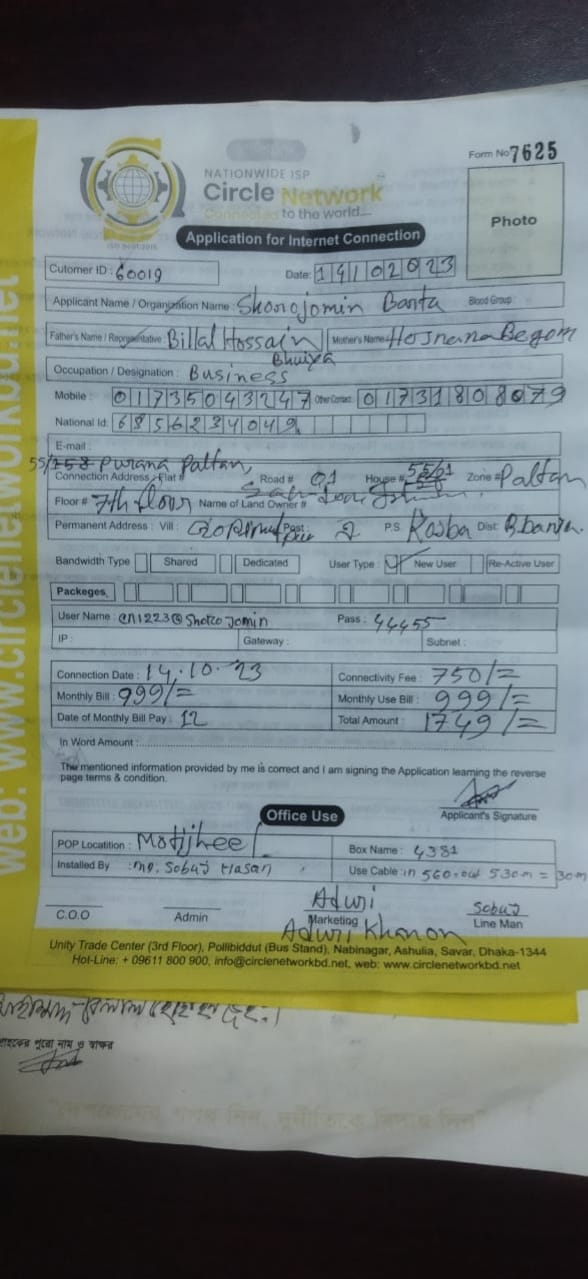 Form No 7625
NATIONWIDE ISP
Circle Network
Connected to the world....
Photo
Application for Internet Connection
Cutomer ID : 60019
Date: 14102023
Applicant Name / Organization Name : Shorojomin Banta Blood Group :
Father's Name / Representative Billal Hossain Bhuiya Mother's Name
Occupation / Designation : Business
Mobile : 01735043247 Other Contact: 01731808079
National Id: 6856234049
E-mail :
Purana Paltan,
Connection Address : Flat # Road # 01 House # 55/01 Zone # Paltan
Floor # 7th floor Name of Land Owner #
Permanent Address : Vill : Post: P.S. Kasba Dist:
Bandwidth Type Shared Dedicated User Type : New User Re-Active User
Packeges
User Name : Pass : 44455
IP : Gateway : Subnet :
Connection Date : 14.10.23 Connectivity Fee : 750/=
Monthly Bill : 999/= Monthly Use Bill : 999/=
Date of Monthly Bill Pay : 12 Total Amount : 1749/=
In Word Amount :
The mentioned information provided by me is correct and I am signing the Application learning the reverse
page terms & condition.
Applicant's Signature
Office Use
POP Locatition : Motijheel Box Name : 4381
Installed By : MD. Sobuj Hasan Use Cable : in 560 out 530m = 30m
Aduri Sobuj
C.O.O Admin Marketing Line Man
Aduri Khanon
Unity Trade Center (3rd Floor), Pollibiddut (Bus Stand), Nabinagar, Ashulia, Savar, Dhaka-1344
Hot-Line: + 09611 800 900, info@circlenetworkbd.net, web: www.circlenetworkbd.net
web: www.circlenetworkbd.net
পুরো নাম ও স্বাক্ষর